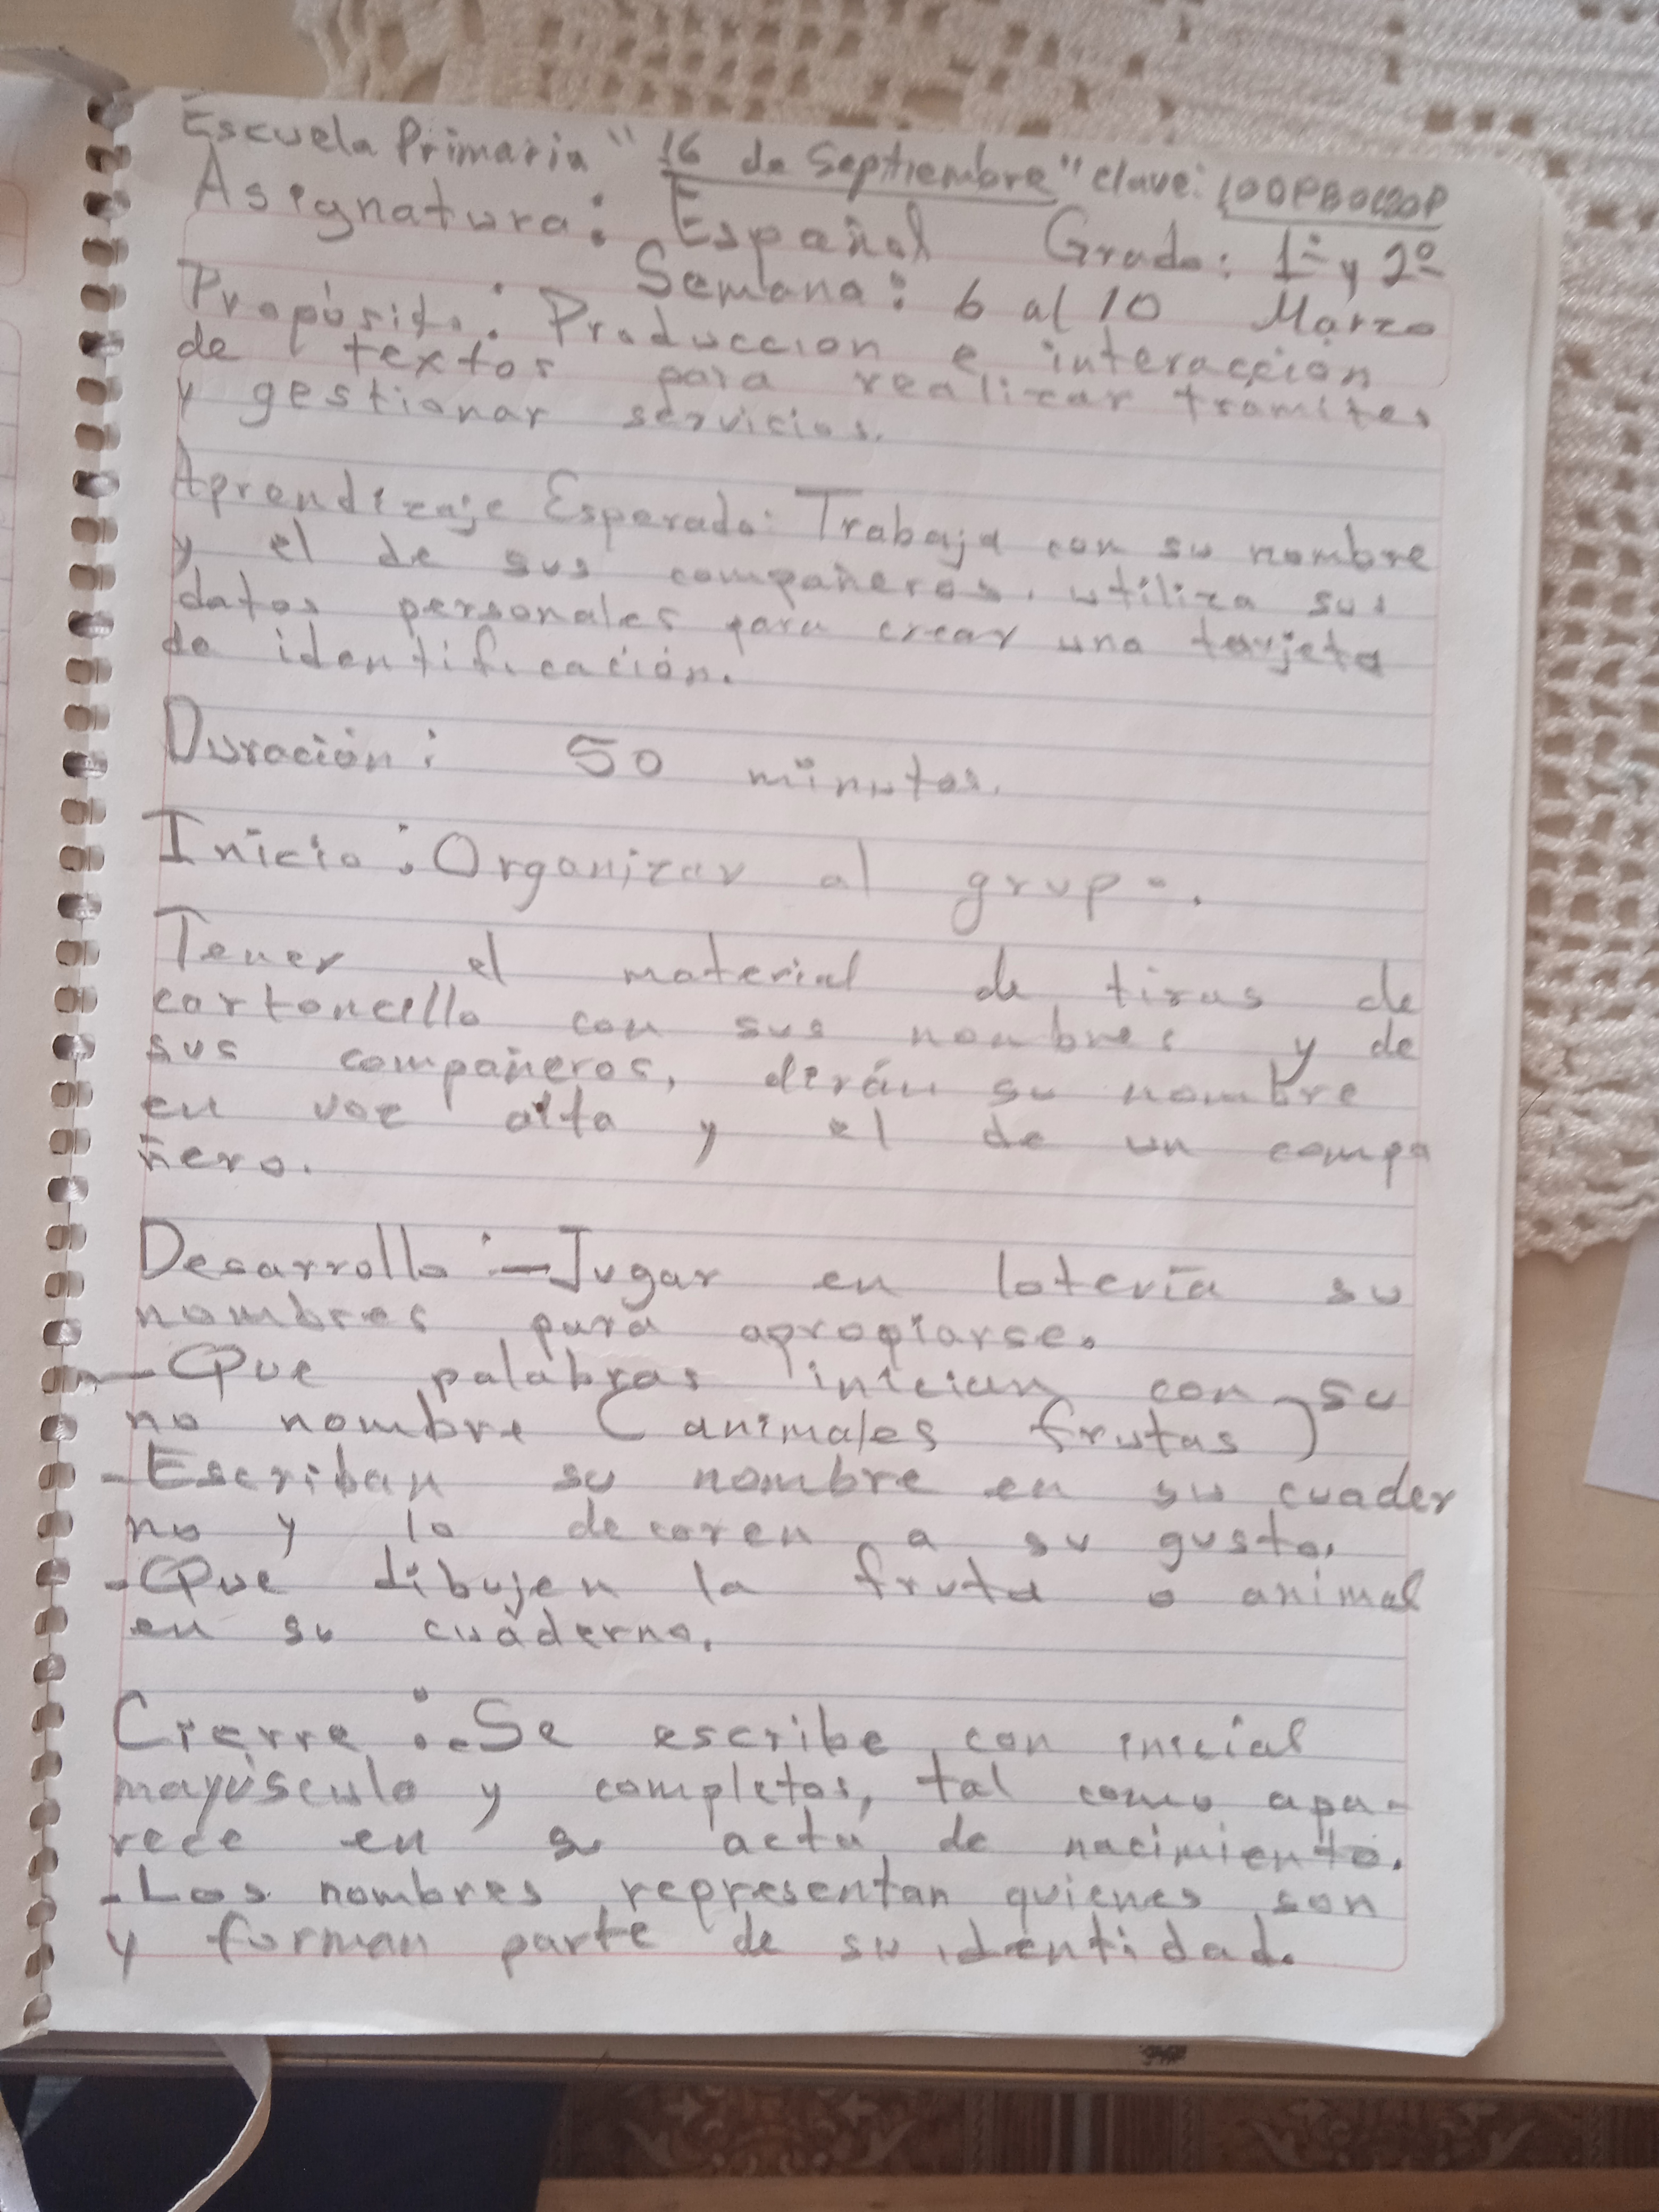 Escuela Primaria "16 de Septiembre" clave:
Asignatura: Español Grado: 1º y 2º
Semana: 6 al 10 Marzo
Propósito: Produccion e interacción
de textos para realizar tramites
y gestionar servicios.
Aprendizaje Esperado: Trabaja con su nombre
y el de sus compañeros, utiliza sus
datos personales para crear una tarjeta
de identificación.
Duración: 50 minutos.
Inicio: Organizar al grupo.
Tener el material de tiras de
cartoncillo con sus nombres y de
sus compañeros, dirán su nombre
en voz alta y el de un compa
ñero.
Desarrollo: - Jugar en lotería su
nombres para apropiarse.
- Que palabras inician con su
no nombre (animales frutas)
- Escriban su nombre en su cuader
no y lo decoren a su gusto.
- Que dibujen la fruta o animal
en su cuaderno.
Cierre: - Se escribe con inicial
mayúscula y completos, tal como apa-
rece en su acta de nacimiento.
- Los nombres representan quienes son
y forman parte de su identidad.